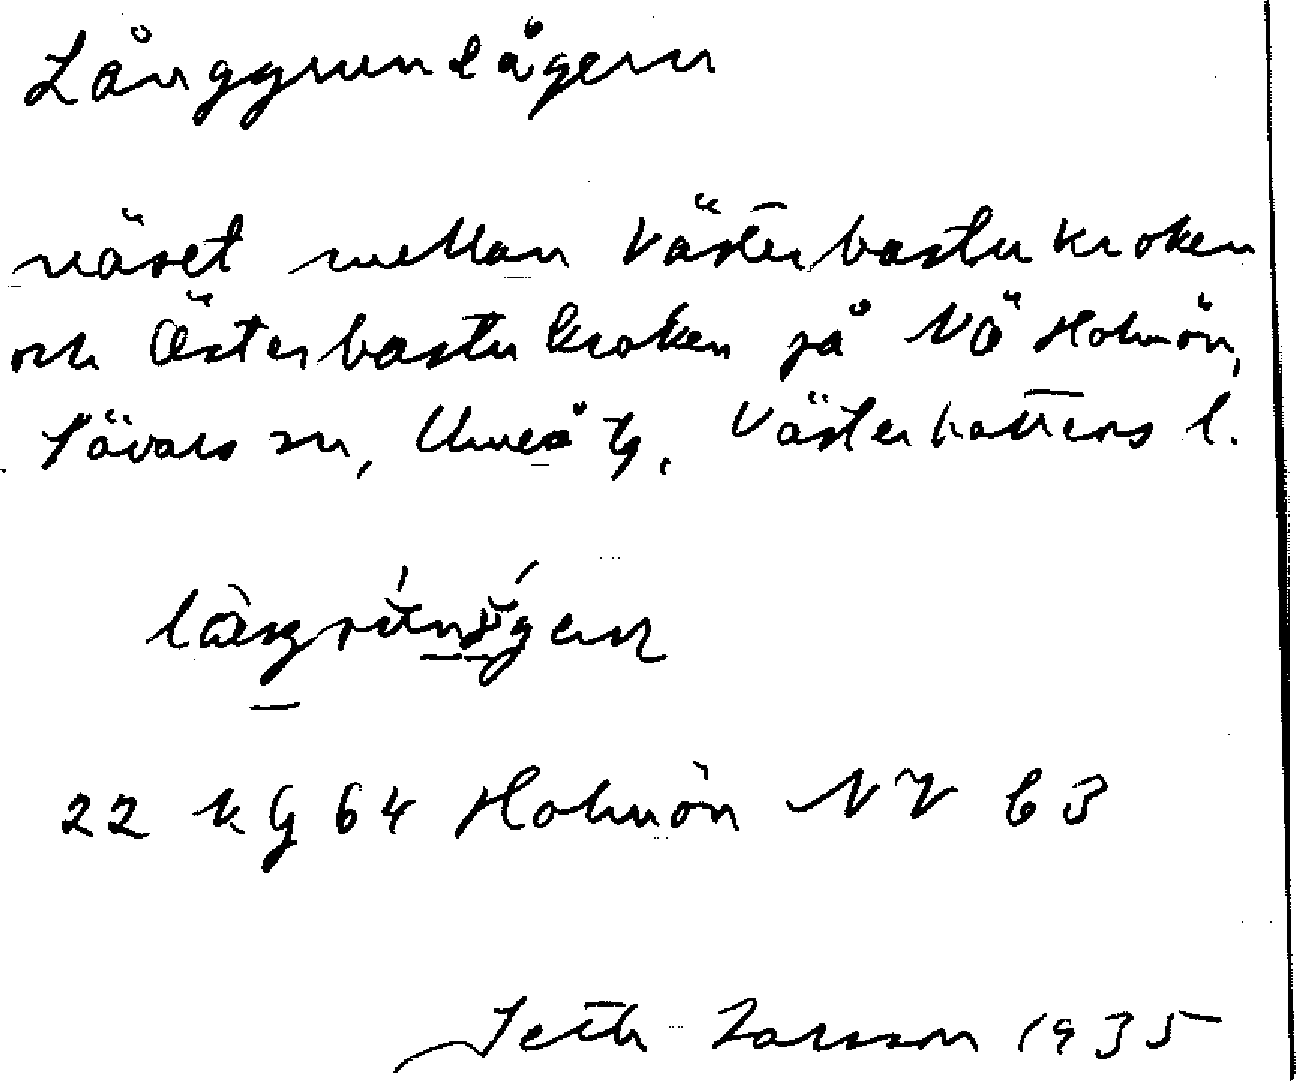 Långgrundågern
näset mellan Västerbastukroken
och Österbastukroken på NÖ Holmön,
Sävars sn, Umeå tg, Västerbottens l.
22 kg 64 Holmön NV 63
Seth Larsson 1935